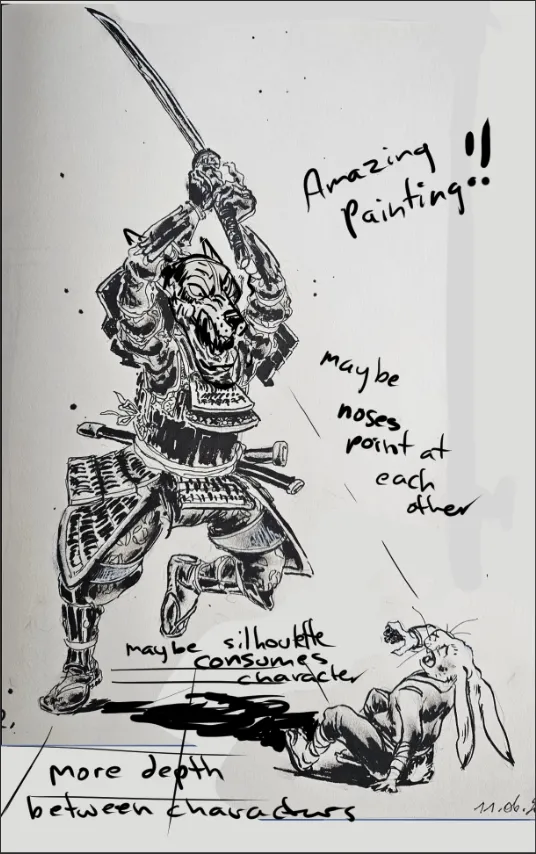 Amazing
Painting!!
maybe
noses
point at
each
other
maybe silhouette
consumes
character
more depth
between characturs
11.06.2